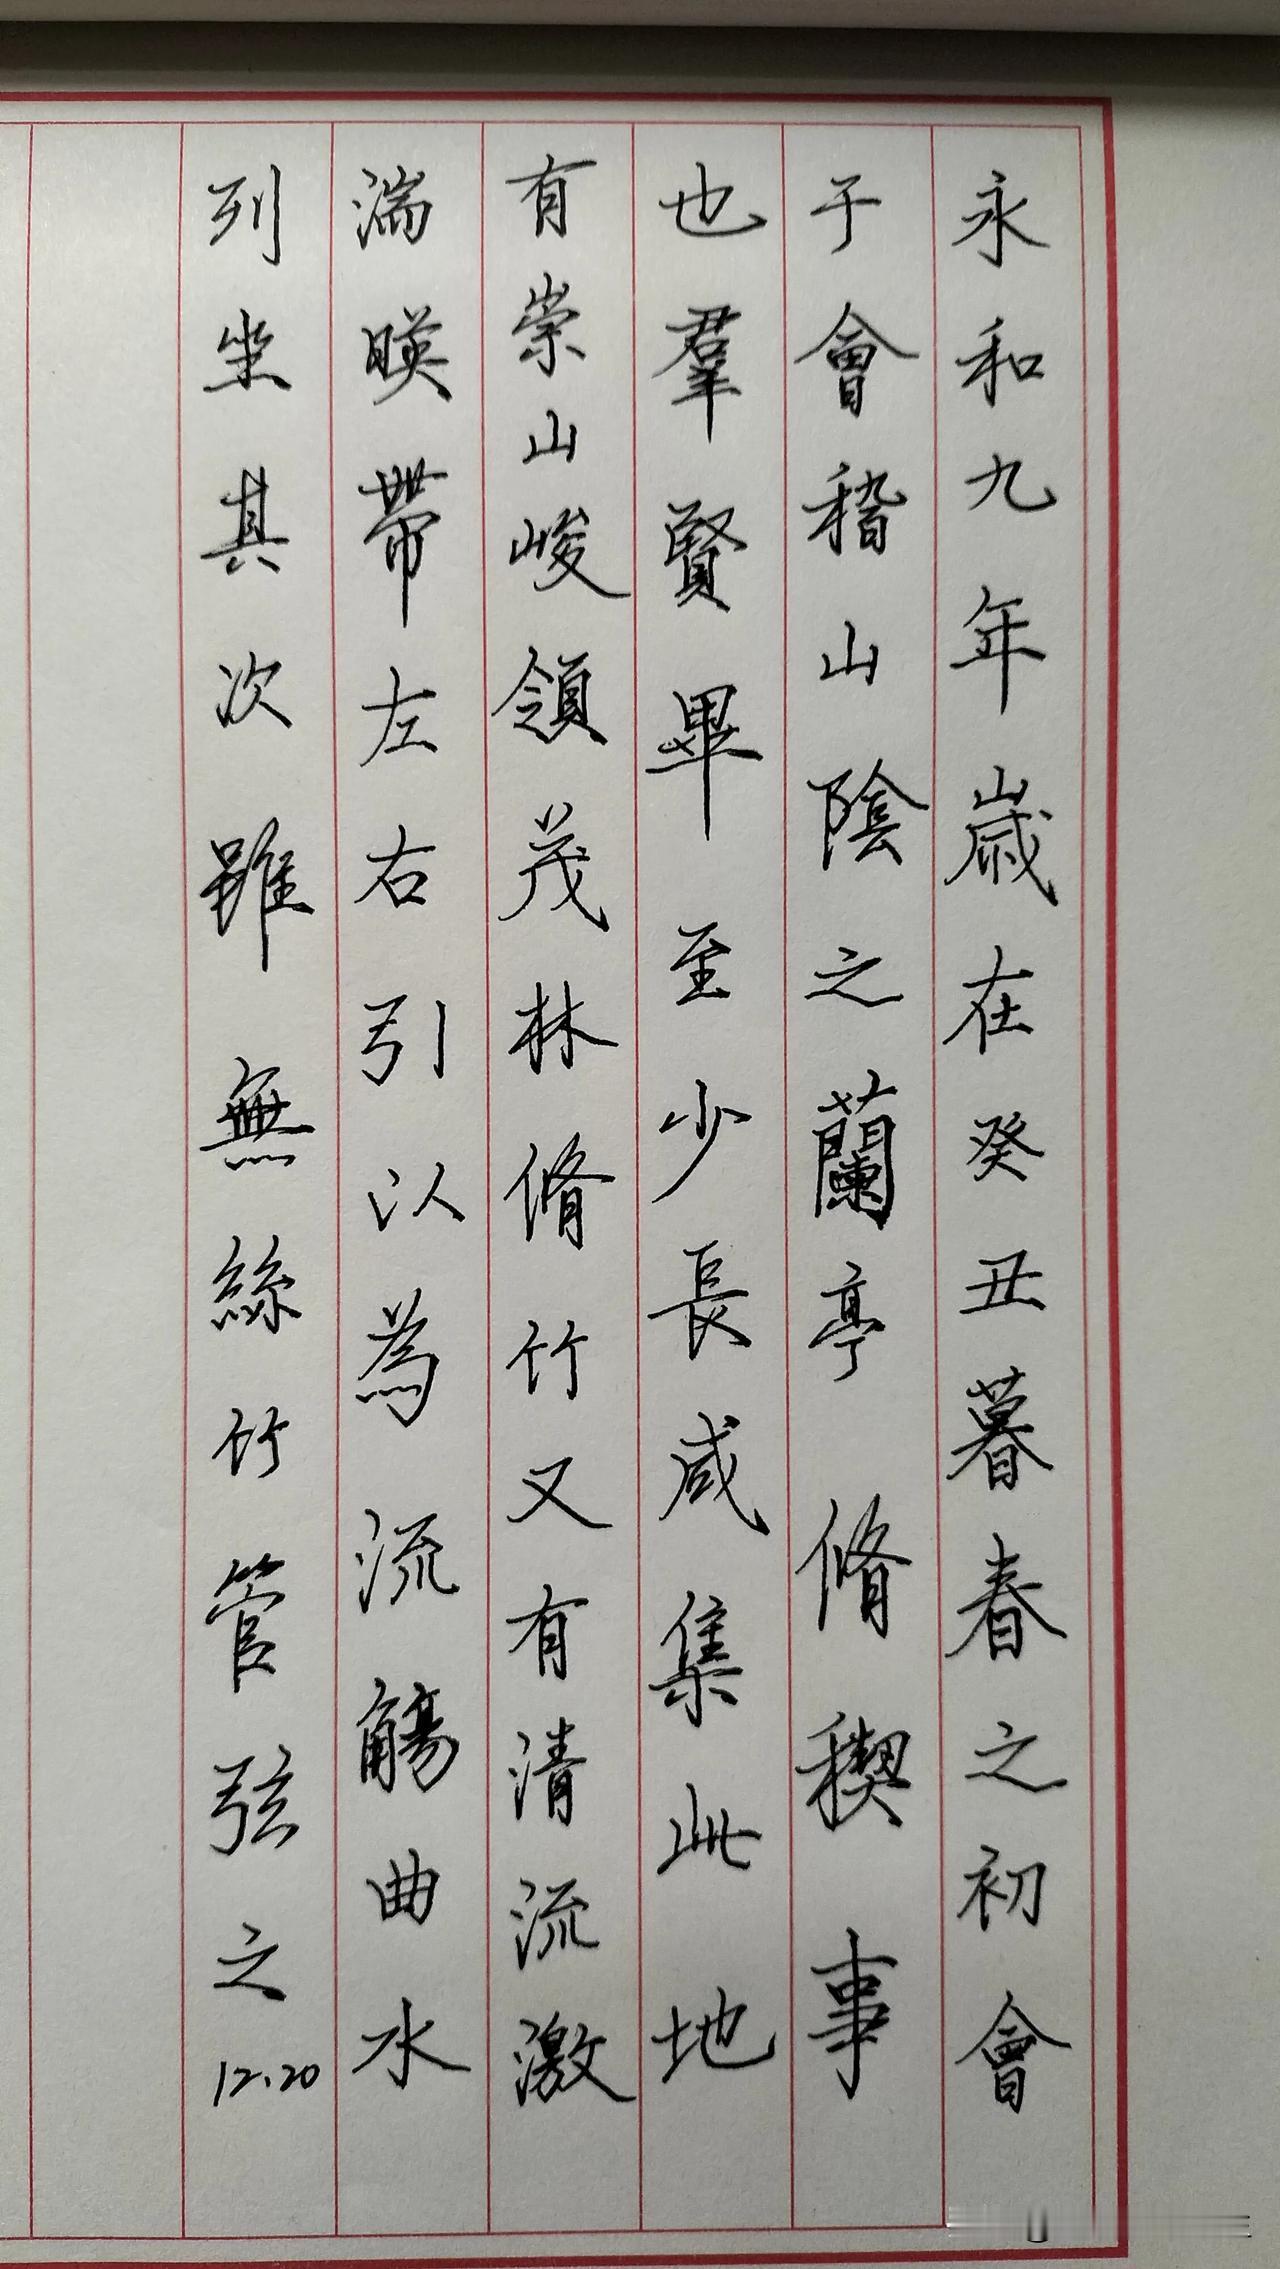 永和九年歲在癸丑暮春之初會
于會稽山陰之蘭亭脩稧事
也羣賢畢至少長咸集此地
有崇山峻領茂林脩竹又有清流激
湍暎帶左右引以為流觴曲水
列坐其次雖無絲竹管弦之
12.20